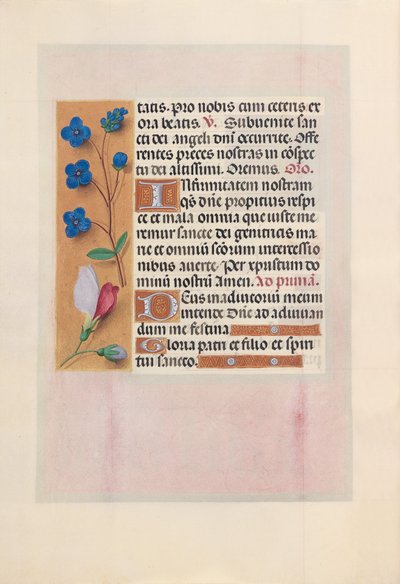 tatis. Pro nobis cum ceteris ex
ora beatis. V. Subuenite san
cti dei angeli dni occurrite. Offe
rentes preces nostras in cōspe
tu dei altissimi. Oremus. Oro.
Infirmitatem nostram
q̄s dn̄e propitius respi
ce et mala omnia que iuste me
remur sancte dei genitricis ma
rie et omniū scōrum intercessio
nibus auerte. Per xpristum do
minū nostrū Amen. Ad primā.
Deus in adiutorium meum
intende Dn̄e ad adiuuan
dum me festina.
Gloria patri et filio et spiri
tui sancto.